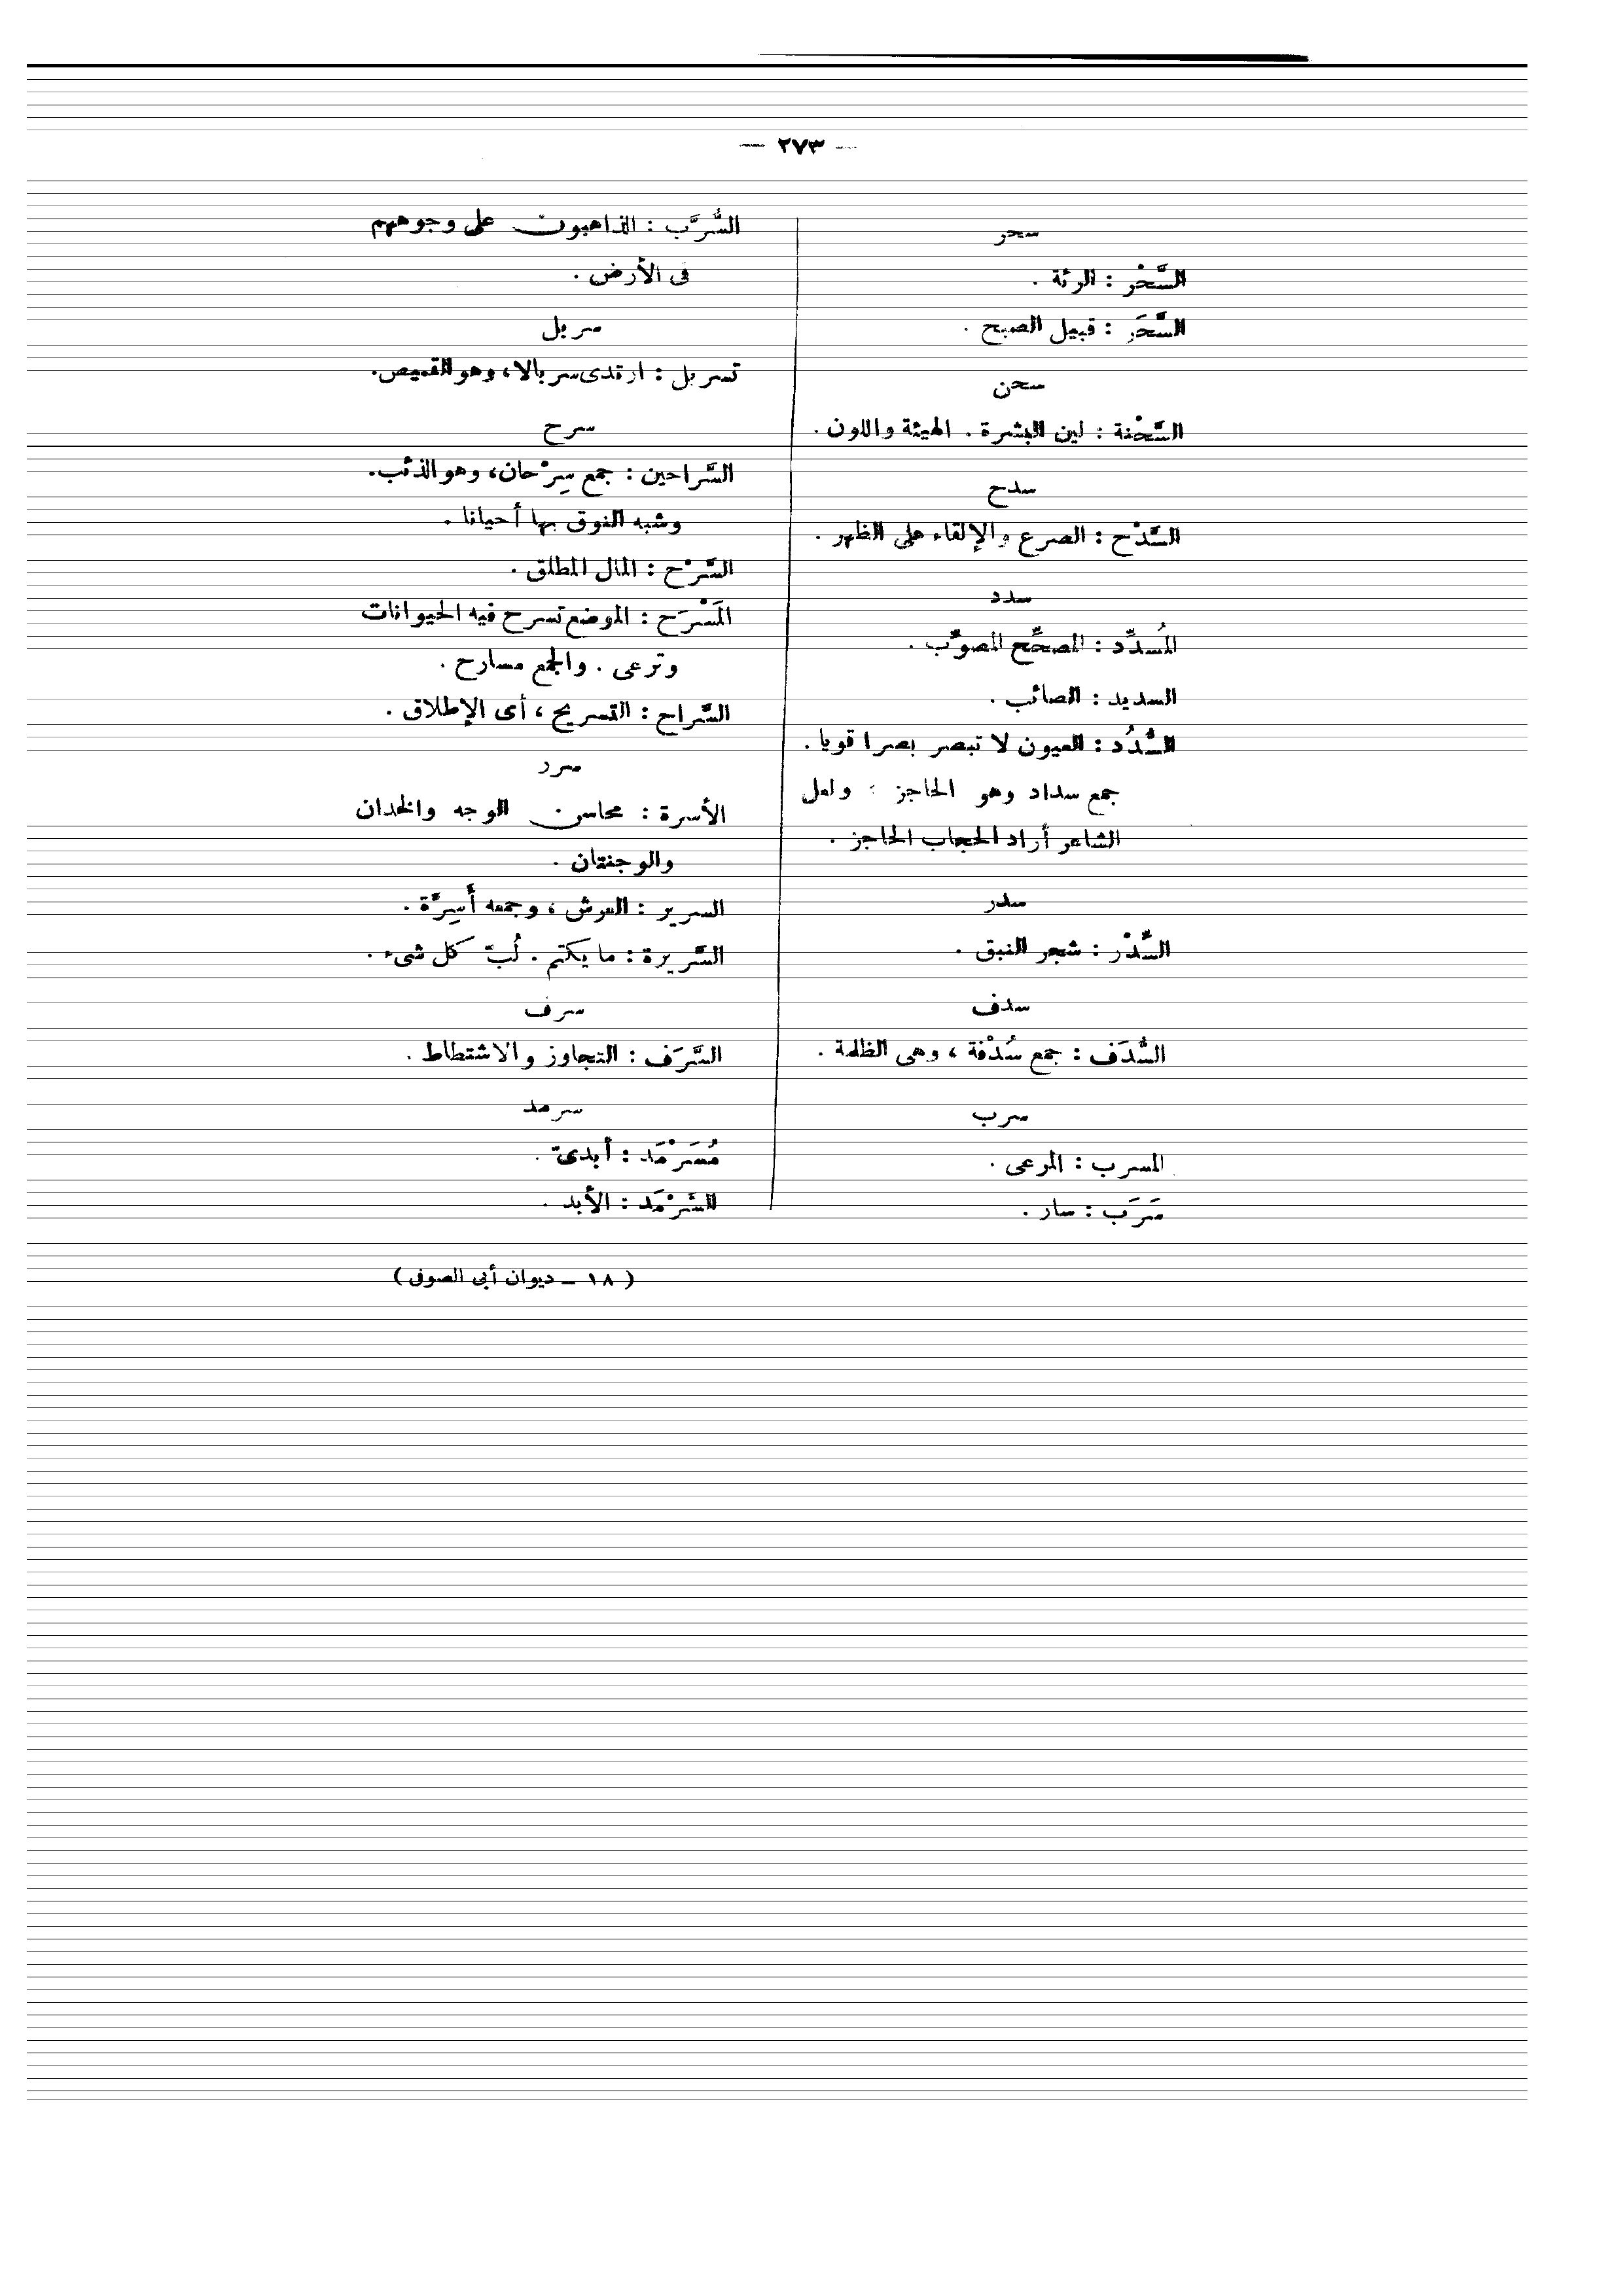 — ٢٧٣ —
سحر
السَّحْر : الرئة .
السَّحَر : قبيل الصبح .
سحن
السَّحْنة : لين البشرة . الهيئة واللون .
سدح
السَّدْح : الصرع والإلقاء على الظهر .
سدد
المُسدِّد : المصحِّح المصوِّب .
السديد : الصائب .
السُّدُد : العيون لا تبصر بصرا قويا .
جمع سداد وهو الحاجز ؛ ولعل
الشاعر أراد الحجاب الحاجز .
سدر
السِّدْر : شجر النبق .
سدف
السُّدَف : جمع سُدْفة ، وهى الظلمة .
سرب
المسرب : المرعى .
سَرَب : سار .
السُّرَّب : الذاهبون على وجوههم
فى الأرض .
سربل
تسربل : ارتدى سربالا، وهو القميص.
سرح
السَّراحين : جمع سِرْحان، وهو الذئب.
وشبه النوق بها أحيانا .
السَّرْح : المال المطلق .
المَسْرَح : الموضع تسرح فيه الحيوانات
وترعى . والجمع مسارح .
السَّراح : التسريح ، أى الإطلاق .
سرر
الأسرة : محاسن الوجه والخدان
والوجنتان .
السرير : العرش ، وجمعه أَسِرَّة .
السَّريرة : ما يكتم . لُبّ كل شىء .
سرف
السَّرَف : التجاوز والاشتطاط .
سرمد
مُسَرْمَد : أبدىّ .
السَّرْمَد : الأبد .
( ١٨ – ديوان أبى الصوفى )